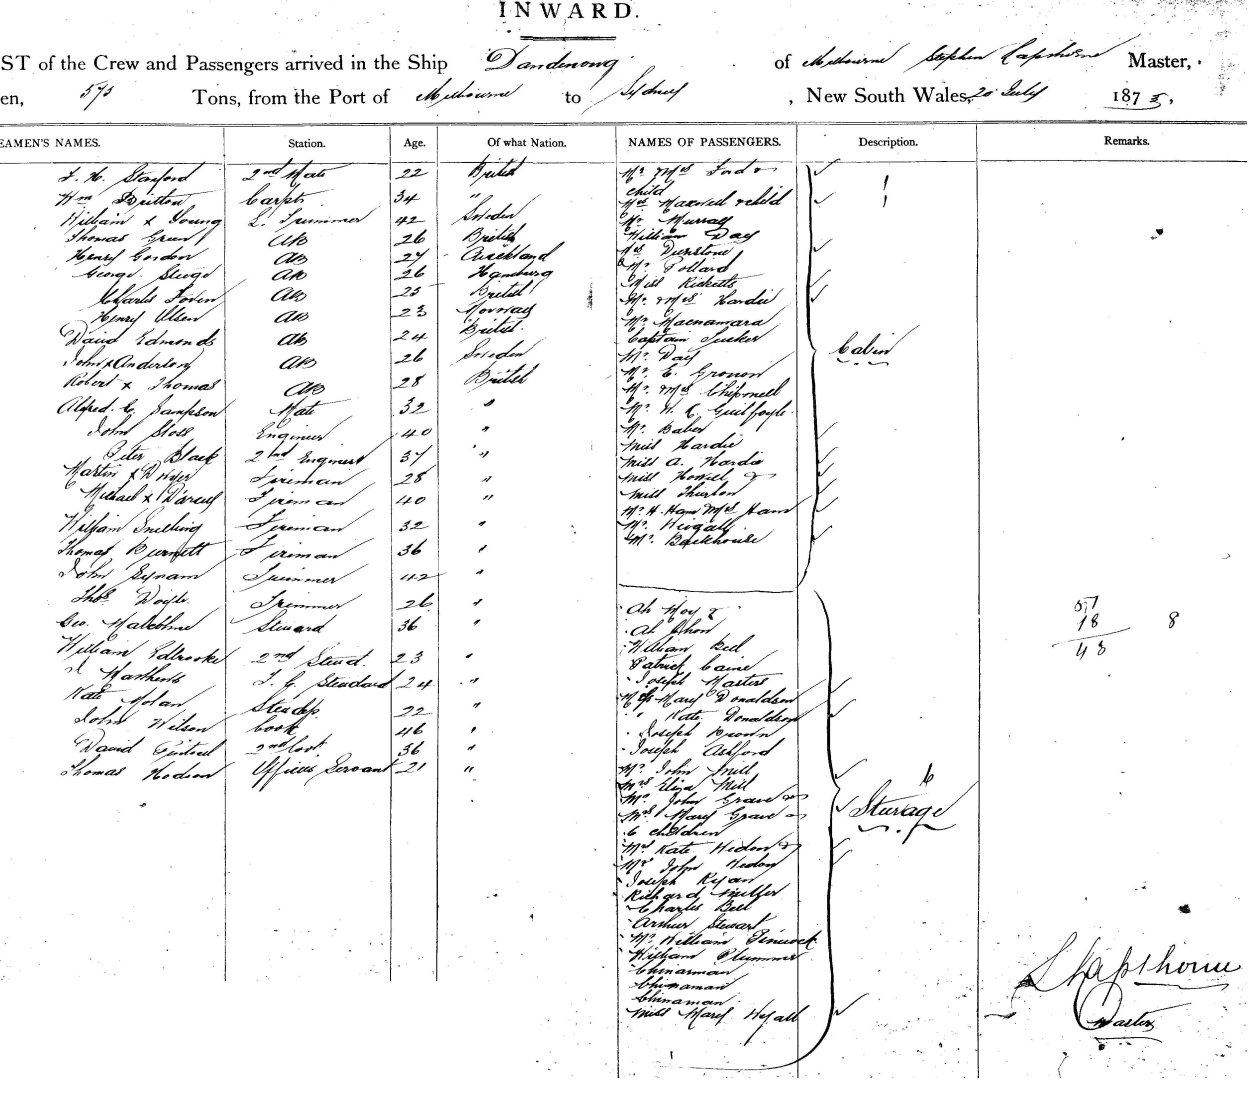 INWARD.
ST of the Crew and Passengers arrived in the Ship Dandenong of Melbourne Stephen Lapthorne Master,
en, 575 Tons, from the Port of Melbourne to Sydney, New South Wales, 20 July 1875,
EAMEN'S NAMES. Station. Age. Of what Nation. NAMES OF PASSENGERS. Description. Remarks.
2nd Mate 22 British
Wm Britton Carptr 34 "
William x Young Trimmer 42 Sweden
Thomas Green AB 26 British
Henry Gordon AB 27 Auckland
George AB 26 Hamburg
Charles AB 25 British
Henry Olsen AB 23 Norway
David Edmonds AB 24 British
John x Anderson AB 26 Sweden
Robert x Thomas AB 28 British
Alfred G Sampson Mate 32 "
John Engineer 40 "
Peter Black 2nd Engineer 37 "
Martin x Dwyer Fireman 28 "
Michael x Fireman 40 "
William Snelling Fireman 32 "
Thomas Burnett Fireman 36 "
John Trimmer 42 "
Thos Doyle Trimmer 26 "
Geo. Steward 36 "
William Edbrooke 2nd Stewd. 23 "
Matthews Steward 24 "
Kate Nolan Stewdss 22 "
John Wilson Cook 46 "
David 2nd Cook 36 "
Thomas Hodson Officers Servant 21 "
Mr & Mrs Ford &
child
Mrs Maxwell & child
Mr Murray
William Day
Mrs Dunstone
Mr. Pollard
Miss Ricketts
Mr. & Mrs Hardie
Mr. Macnamara
Captain Tucker
Mr. Day
Mr. E.
Mr. & Mrs Chipnell
Mr. Guilfoyle
Mr. Baber
Miss Hardie
Miss A. Hardie
Miss Howell
Miss Thurlow
Mr. H. Ham Mrs Ham
Mr.
Mr. Backhouse
Cabin
Ah Moy &
Ah Chon
William Bell
Patrick Caine
Joseph Masters
Mary Donaldson
" Kate Donaldson
Joseph Brown
Joseph Ashford
Mr. John Mill
Mrs Eliza Mill
Mr John Grave &
Mrs Mary Grave &
6 children
Mrs Kate Hedon &
Mr John Hedon
Joseph Ryan
Richard Miller
Charles Bell
Arthur Stewart
Mr. William Pinnock
William Plummer
Chinaman
Chinaman
Chinaman
Miss Mary Hyall
6
Steerage
18 8
48
S Lapthorne
Master